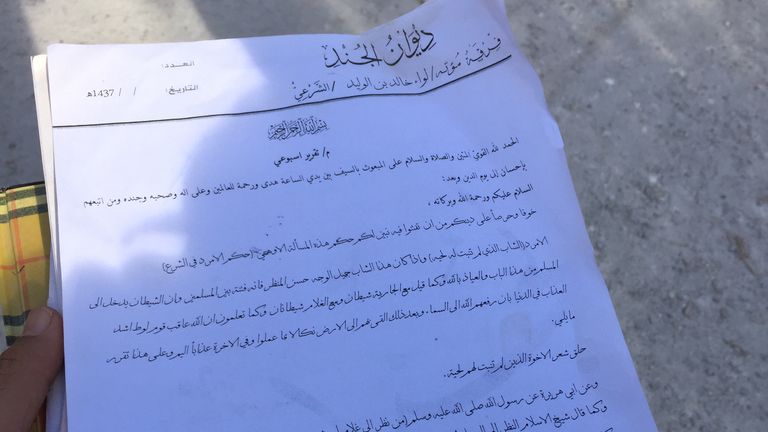 ديوان الجند
فرقة مؤته / لواء خالد بن الوليد / الشرعي
العدد:
التاريخ: / / 1437هـ
بسم الله الرحمن الرحيم
م/ تقرير اسبوعي
الحمد لله القوي المتين والصلاة والسلام على المبعوث بالسيف بين يدي الساعة هدى ورحمة للعالمين وعلى اله وصحبه وجنده ومن اتبعهم
بإحسان إلى يوم الدين وبعد:
السلام عليكم ورحمة الله وبركاته ,
خوفا وحرصاً على دينكم من ان تفتنوا فيه نبين لكم حكم هذه المسألة الا وهي (حكم الامرد في الشرع)
الامرد (الشاب الذي لم تنبت له لحية) واذا كان هذا الشاب جميل الوجه حسن المنظر فانه فتنة بين المسلمين وان الشيطان يدخل الى
المسلم من هذا الباب والعياذ بالله وكما قيل مع الجارية شيطان ومع الغلام شيطانان وكما تعلمون ان الله عاقب قوم لوط اشد
العذاب في الدنيا بان رفعهم الله الى السماء وبعد ذلك القى بهم الى الارض نكالا بما عملوا وفي الاخرة عذاباً اليم وعلى هذا تقرر
مايلي.
حلق شعر الاخوة الذين لم تنبت لهم لحية.
وعن ابي هريرة عن رسول الله صلى الله عليه وسلم (من نظر الى
وكما قال شيخ الاسلام النظر الى